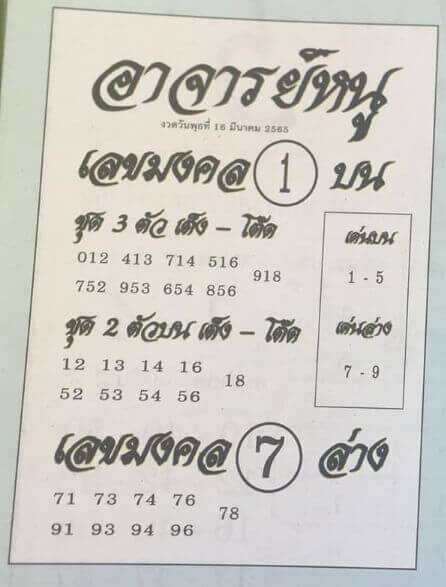 อาจารย์หนู
งวดวันพุธที่ 16 มีนาคม 2565
เลขมงคล 1 บน
ชุด 3 ตัว เต็ง - โต๊ด
012 413 714 516
918
752 953 654 856
เด่นบน
1 - 5
เด่นล่าง
7 - 9
ชุด 2 ตัวบน เต็ง - โต๊ด
12 13 14 16
18
52 53 54 56
เลขมงคล 7 ล่าง
71 73 74 76
78
91 93 94 96